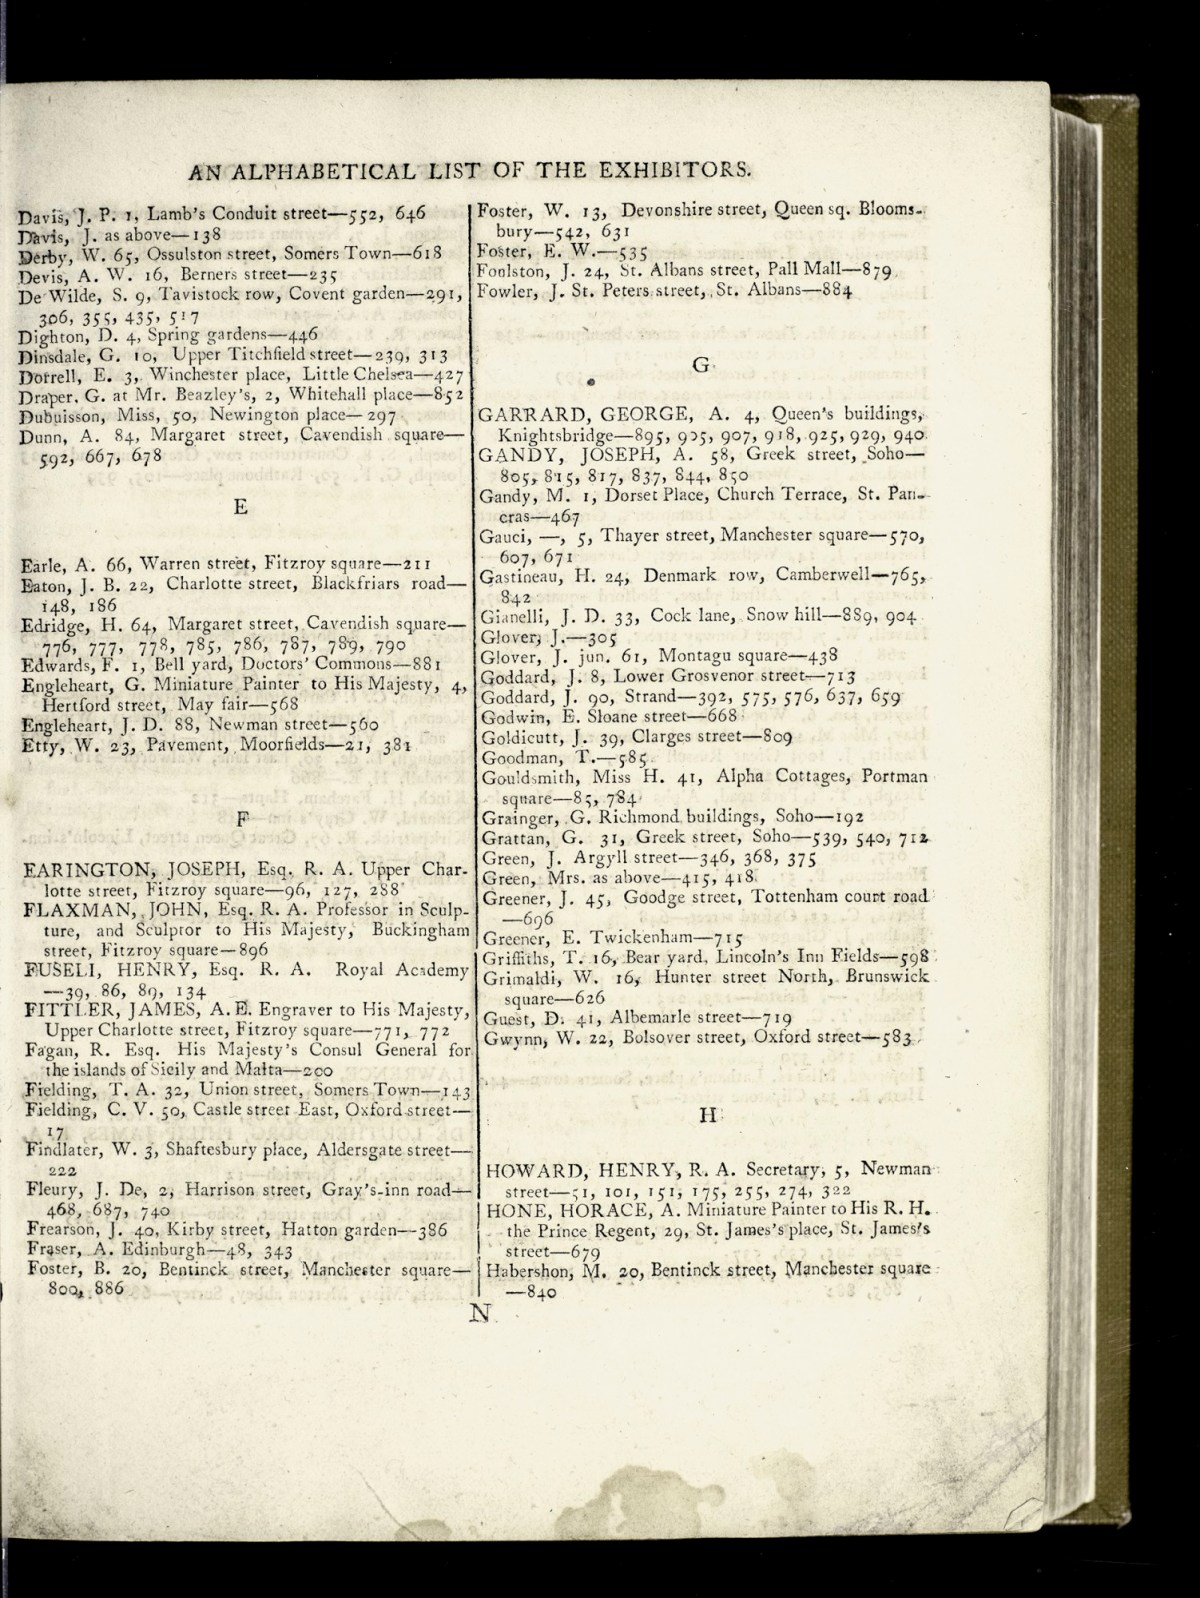 AN ALPHABETICAL LIST OF THE EXHIBITORS.
Davis, J. P. 1, Lamb's Conduit street—552, 646
Davis, J. as above—138
Derby, W. 65, Ossulston street, Somers Town—618
Devis, A. W. 16, Berners street—235
De Wilde, S. 9, Tavistock row, Covent garden—291,
306, 355, 435, 517
Dighton, D. 4, Spring gardens—446
Dinsdale, G. 10, Upper Titchfield street—239, 313
Dorrell, E. 3, Winchester place, Little Chelsea—427
Draper, G. at Mr. Beazley's, 2, Whitehall place—852
Dubuisson, Miss, 50, Newington place—297
Dunn, A. 84, Margaret street, Cavendish square—
592, 667, 678
E
Earle, A. 66, Warren street, Fitzroy square—211
Eaton, J. B. 22, Charlotte street, Blackfriars road—
148, 186
Edridge, H. 64, Margaret street, Cavendish square—
776, 777, 778, 785, 786, 787, 789, 790
Edwards, F. 1, Bell yard, Doctors' Commons—881
Engleheart, G. Miniature Painter to His Majesty, 4,
Hertford street, May fair—568
Engleheart, J. D. 88, Newman street—560
Etty, W. 23, Pavement, Moorfields—21, 381
F
EARINGTON, JOSEPH, Esq. R. A. Upper Char-
lotte street, Fitzroy square—96, 127, 288
FLAXMAN, JOHN, Esq. R. A. Professor in Sculp-
ture, and Sculptor to His Majesty, Buckingham
street, Fitzroy square—896
FUSELI, HENRY, Esq. R. A. Royal Academy
—39, 86, 89, 134
FITTLER, JAMES, A. E. Engraver to His Majesty,
Upper Charlotte street, Fitzroy square—771, 772
Fagan, R. Esq. His Majesty's Consul General for
the islands of Sicily and Malta—200
Fielding, T. A. 32, Union street, Somers Town—143
Fielding, C. V. 50, Castle street East, Oxford street—
17
Findlater, W. 3, Shaftesbury place, Aldersgate street—
222
Fleury, J. De, 2, Harrison street, Gray's-inn road—
468, 687, 740
Frearson, J. 40, Kirby street, Hatton garden—386
Fraser, A. Edinburgh—48, 343
Foster, B. 20, Bentinck street, Manchester square—
800, 886
Foster, W. 13, Devonshire street, Queen sq. Blooms-
bury—542, 631
Foster, E. W.—535
Foulston, J. 24, St. Albans street, Pall Mall—879
Fowler, J. St. Peters street, St. Albans—884
G
GARRARD, GEORGE, A. 4, Queen's buildings,
Knightsbridge—895, 905, 907, 918, 925, 929, 940
GANDY, JOSEPH, A. 58, Greek street, Soho—
805, 815, 817, 837, 844, 850
Gandy, M. 1, Dorset Place, Church Terrace, St. Pan-
cras—467
Gauci, —, 5, Thayer street, Manchester square—570,
607, 671
Gastineau, H. 24, Denmark row, Camberwell—765,
842
Gianelli, J. D. 33, Cock lane, Snow hill—889, 904
Glover, J.—305
Glover, J. jun. 61, Montagu square—438
Goddard, J. 8, Lower Grosvenor street—713
Goddard, J. 90, Strand—392, 575, 576, 637, 659
Godwin, E. Sloane street—668
Goldicutt, J. 39, Clarges street—809
Goodman, T.—585
Gouldsmith, Miss H. 41, Alpha Cottages, Portman
square—85, 784
Grainger, G. Richmond buildings, Soho—192
Grattan, G. 31, Greek street, Soho—539, 540, 712
Green, J. Argyll street—346, 368, 375
Green, Mrs. as above—415, 418
Greener, J. 45, Goodge street, Tottenham court road
—696
Greener, E. Twickenham—715
Griffiths, T. 16, Bear yard, Lincoln's Inn Fields—598
Grimaldi, W. 16, Hunter street North, Brunswick
square—626
Guest, D. 41, Albemarle street—719
Gwynn, W. 22, Bolsover street, Oxford street—583
H
HOWARD, HENRY, R. A. Secretary, 5, Newman
street—51, 101, 151, 175, 255, 274, 322
HONE, HORACE, A. Miniature Painter to His R. H.
the Prince Regent, 29, St. James's place, St. James's
street—679
Habershon, M. 20, Bentinck street, Manchester square
—840
N